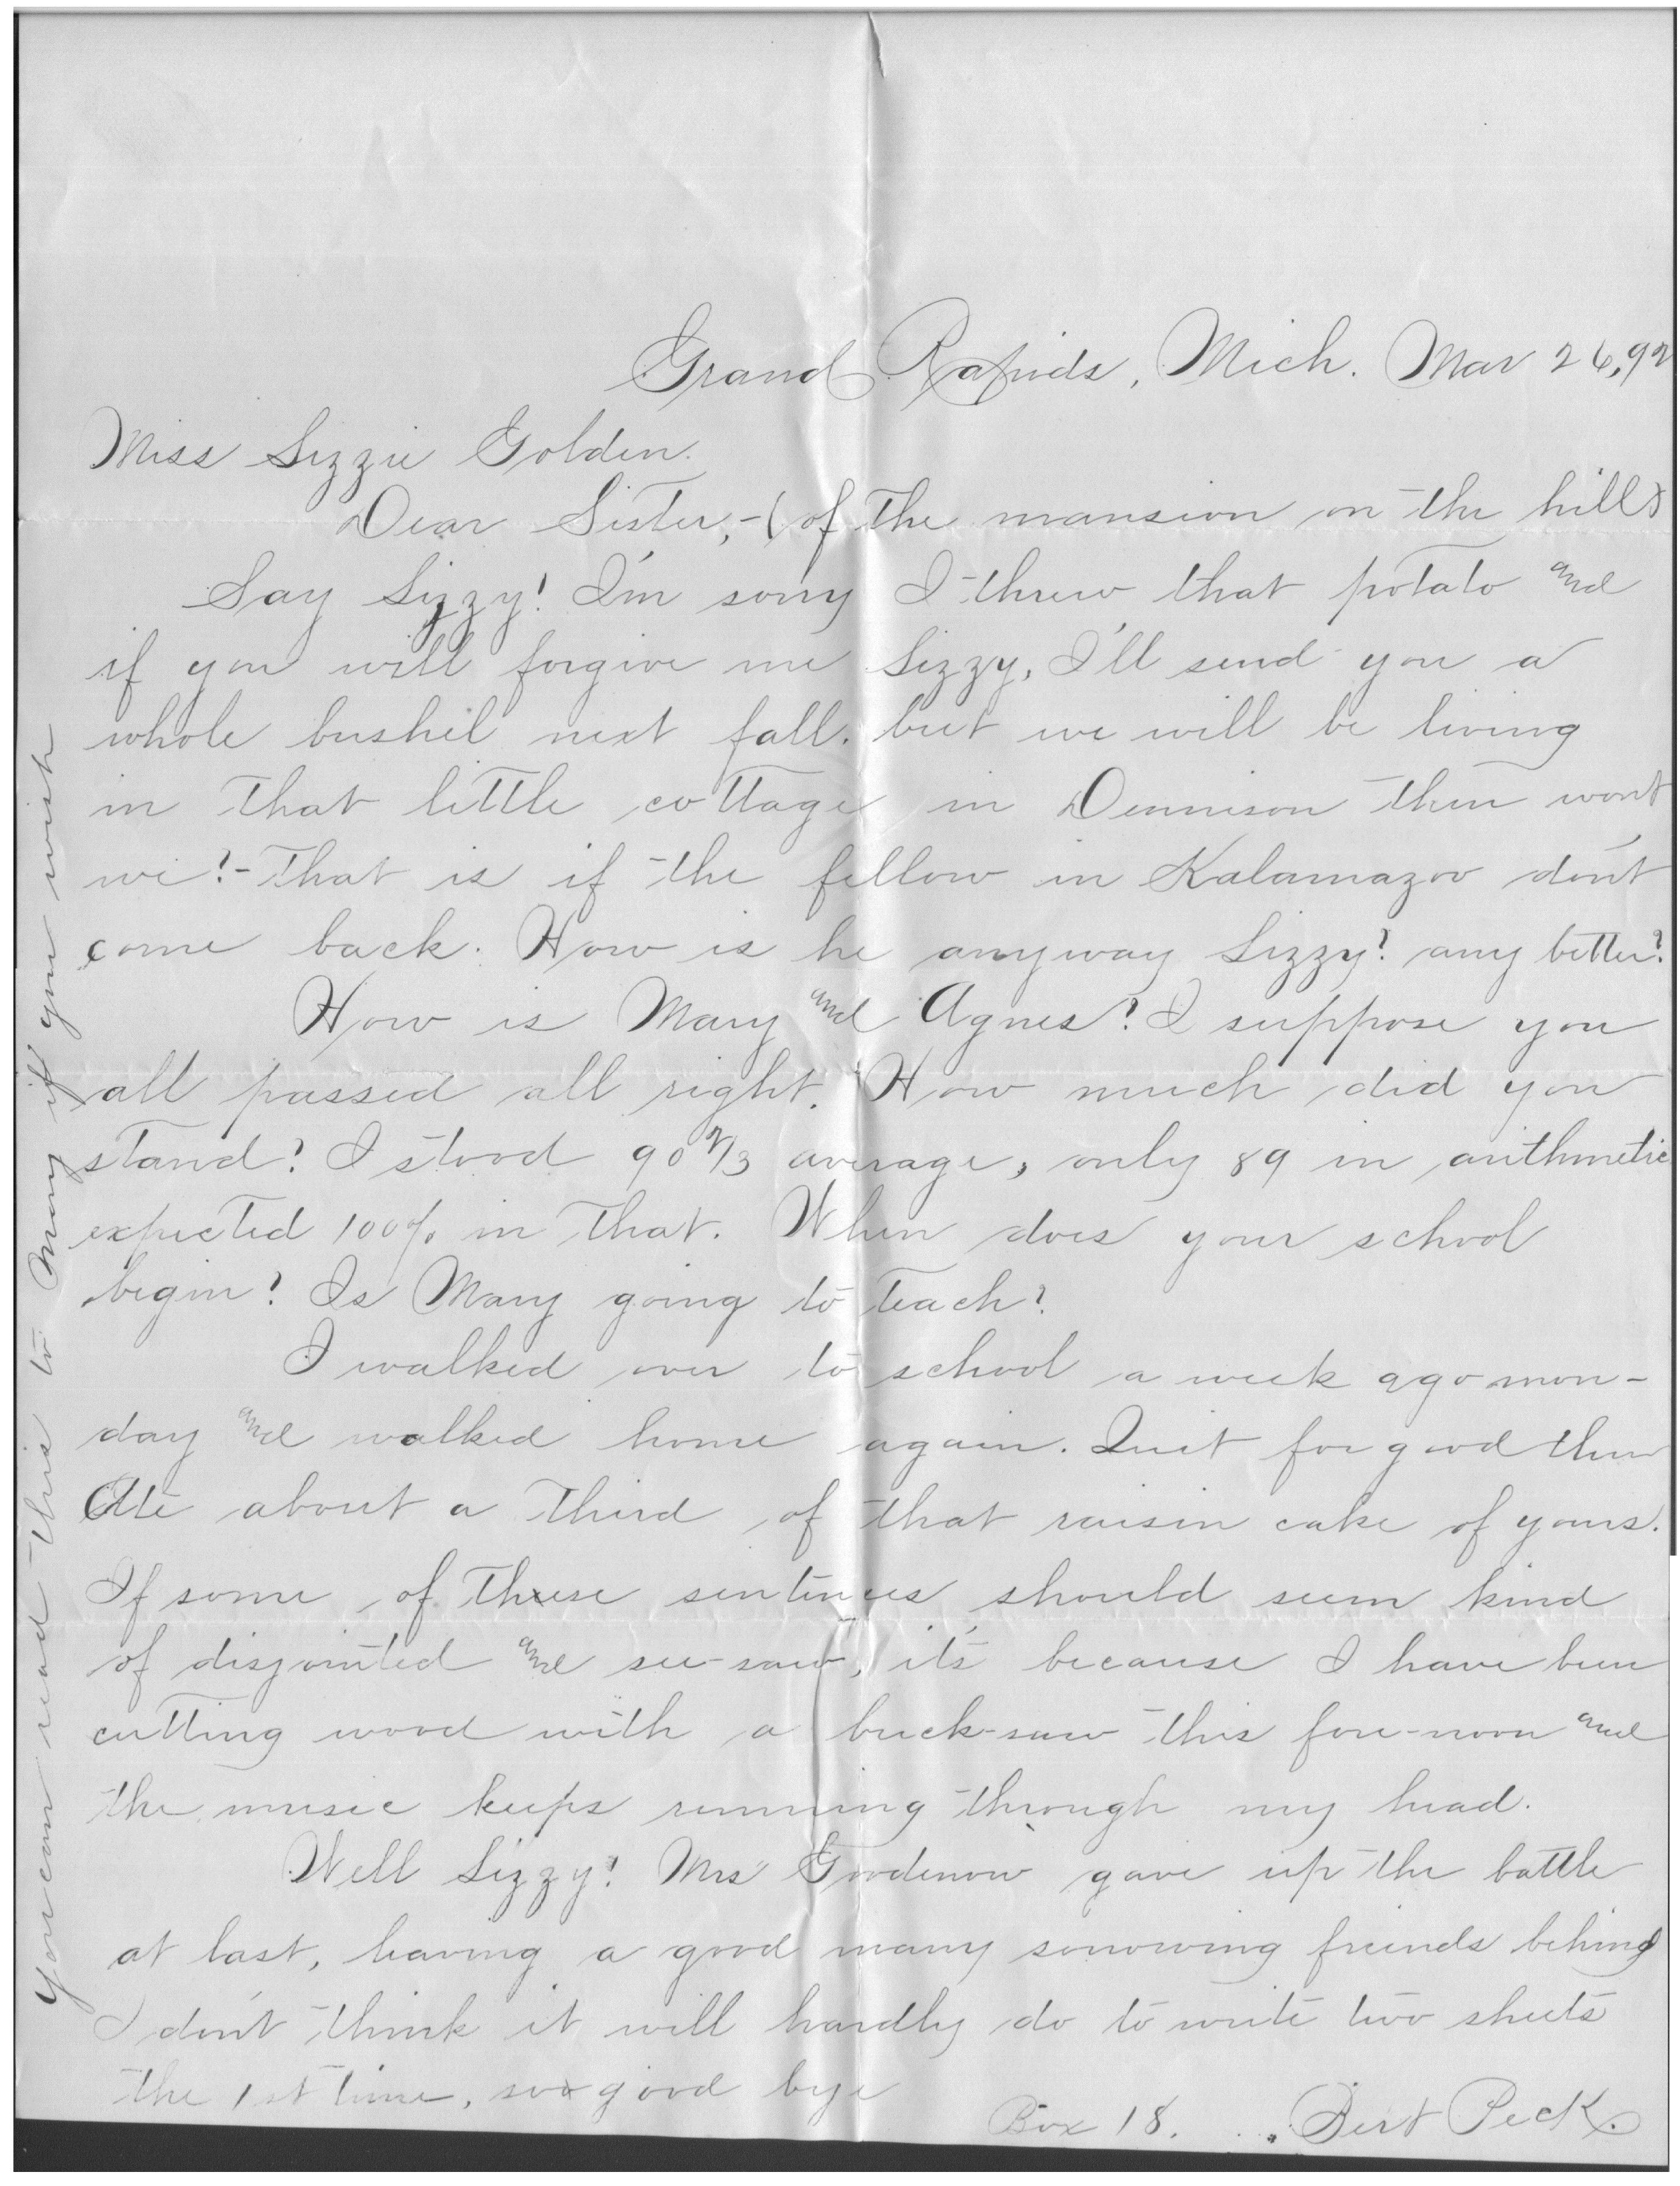 Grand Rapids, Mich. Mar 26, 92
Miss Lizzie Golden.
Dear Sister,-(of the mansion on the hill)
Say Lizzy! I'm sorry I threw that potato and
if you will forgive me Lizzy, I'll send you a
whole bushel next fall. but we will be living
in that little cottage in Dennison then wont
we?- That is if the fellow in Kalamazoo don't
come back. How is he anyway Lizzy? any better?
How is Mary and Agnes? I suppose you
all passed all right. How much did you
stand? I stood 90 2/3 average, only 89 in arithmetic
expected 100% in that. When does your school
begin? Is Mary going to teach?
I walked over to school a week ago mon-
day and walked home again. Quit for good then
Ate about a third of that raisin cake of yours.
If some of these sentences should seem kind
of disjointed and see-saw, it's because I have been
cutting wood with a buck-saw this fore-noon and
the music keeps running through my head.
Well Lizzy! Mrs Goodenow gave up the battle
at last, leaving a good many sorrowing friends behind
I don't think it will hardly do to write two sheets
the 1st time, so good bye
Box 18. Bert Peck.
You can read this to Mary if you wish